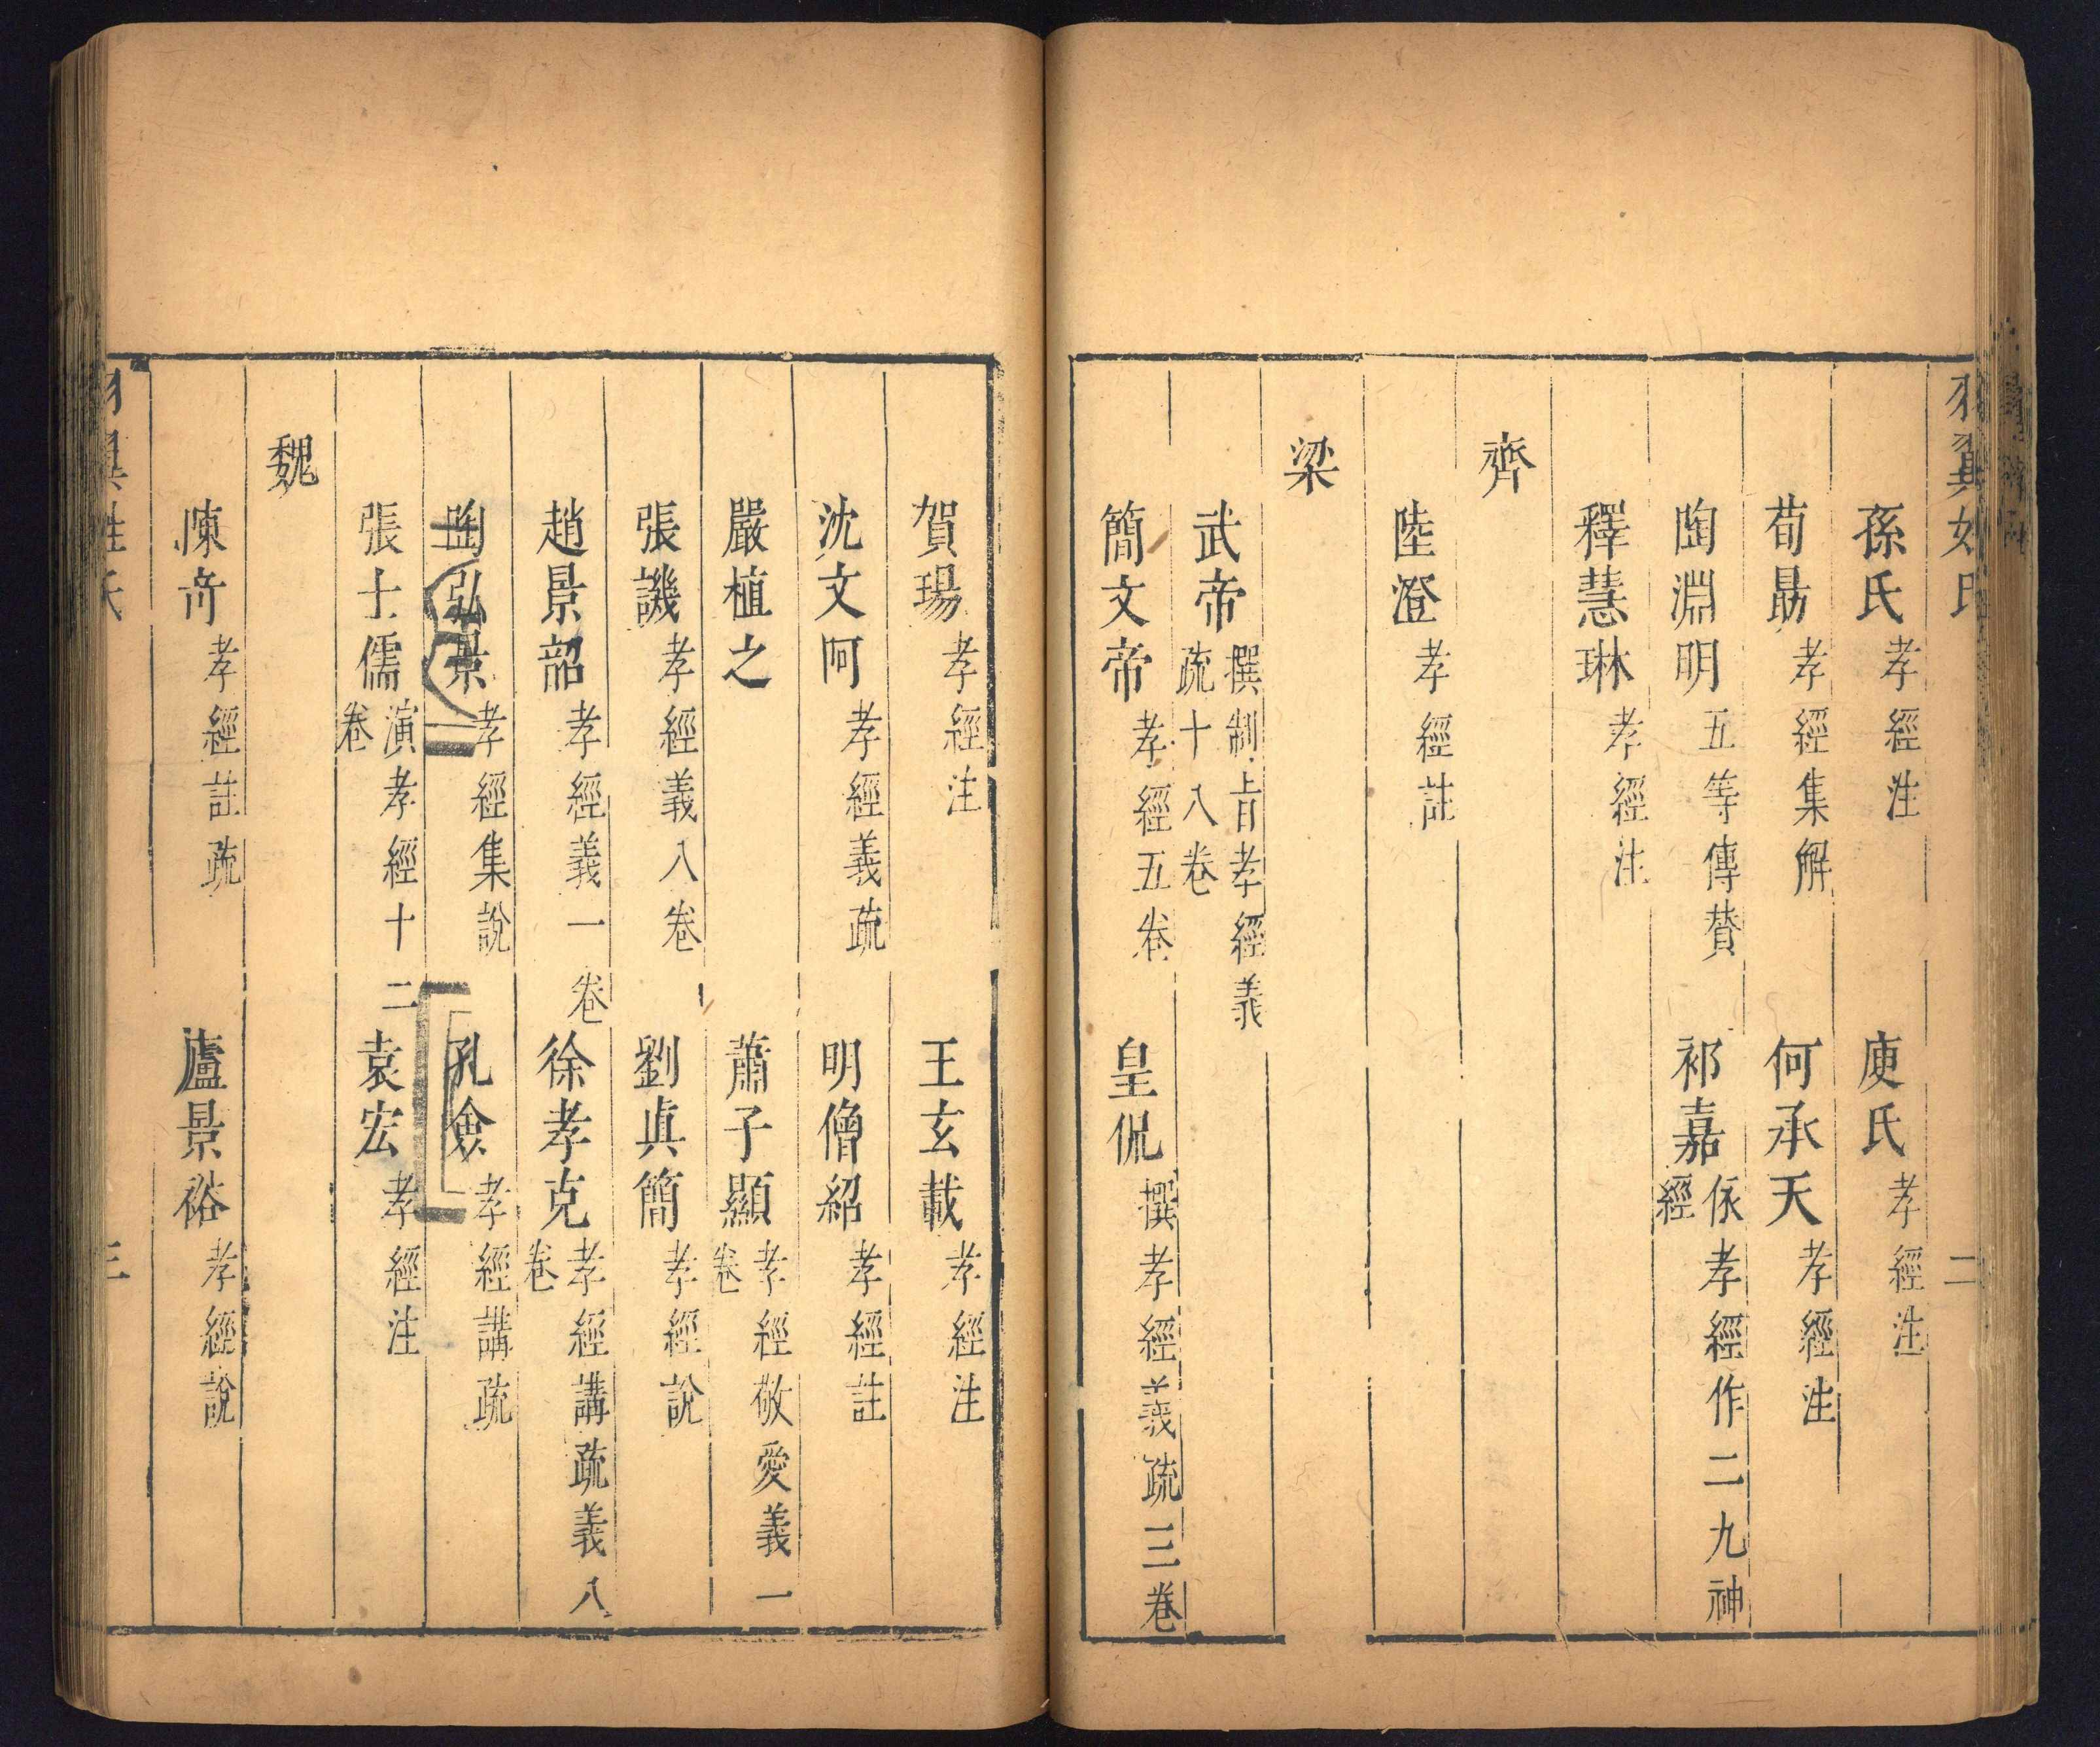 羽翼姓氏 二
孫氏 孝經注 庾氏 孝經注
荀勗 孝經集解 何承天 孝經注
陶淵明 五等傳贊 祁嘉 依孝經作二九神經
釋慧琳 孝經注
齊
陸澄 孝經註
梁
武帝 撰制旨孝經義疏十八卷
簡文帝 孝經五卷 皇侃 撰孝經義疏三卷
賀瑒 孝經注 王玄載 孝經注
沈文阿 孝經義疏 明僧紹 孝經註
嚴植之 蕭子顯 孝經敬愛義一卷
張譏 孝經義八卷 劉貞簡 孝經說
趙景韶 孝經義一卷 徐孝克 孝經講疏義八卷
陶弘景 孝經集說 孔僉 孝經講疏
張士儒 演孝經十二卷 袁宏 孝經注
魏
陳奇 孝經註疏 盧景裕 孝經說
羽翼姓氏 三